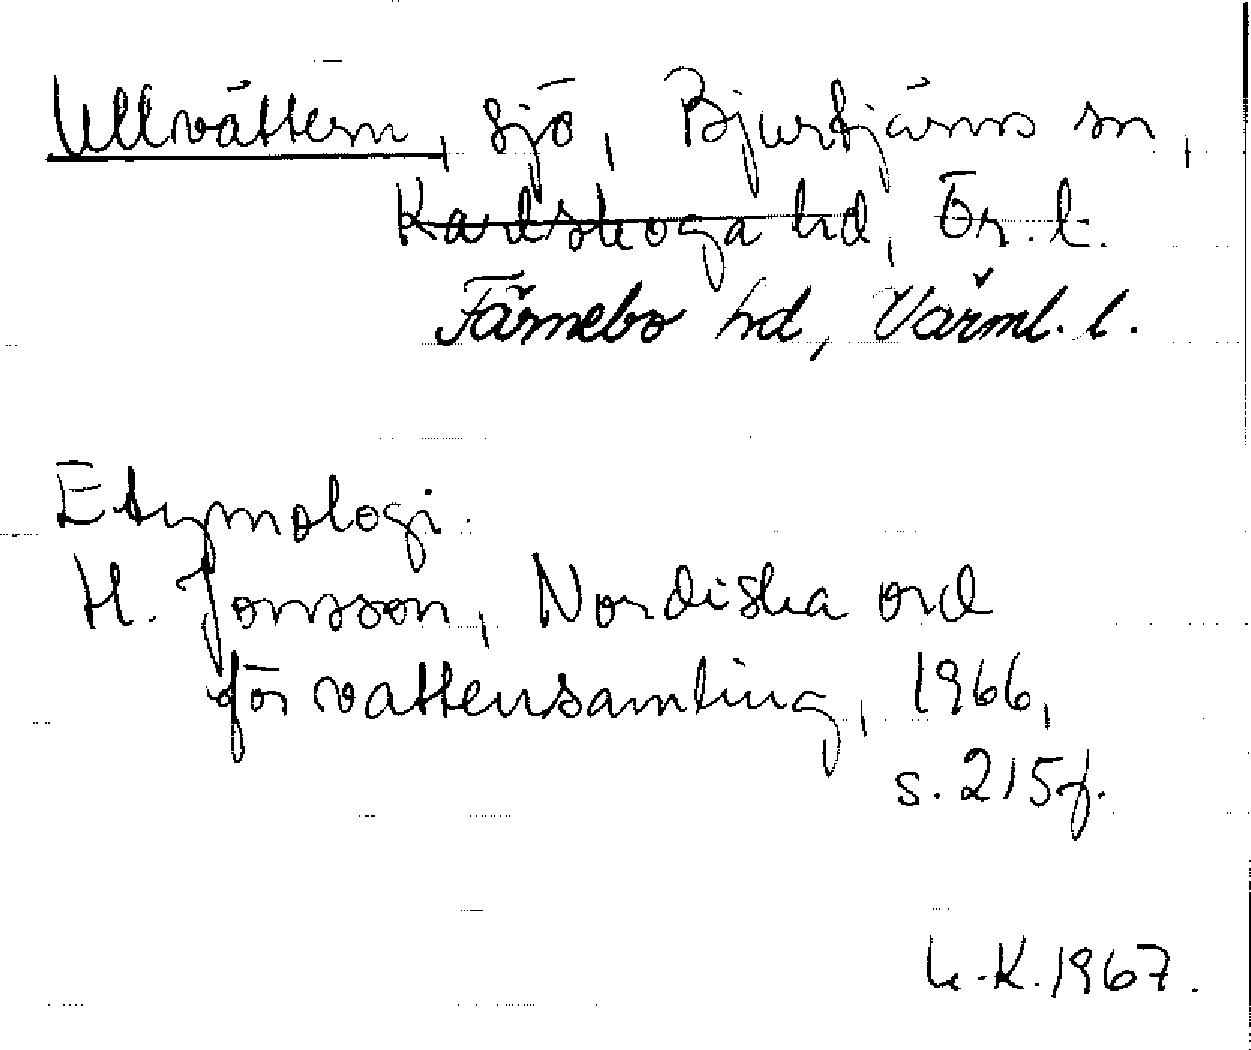 Ullvättern, sjö, Bjurtjärns sn,
Karlskoga hd, Ör. l.
Färnebo hd, Värml. l.
Etymologi.
H. Jonsson, Nordiska ord
för vattensamling, 1966,
s. 215f.
K. 1967.